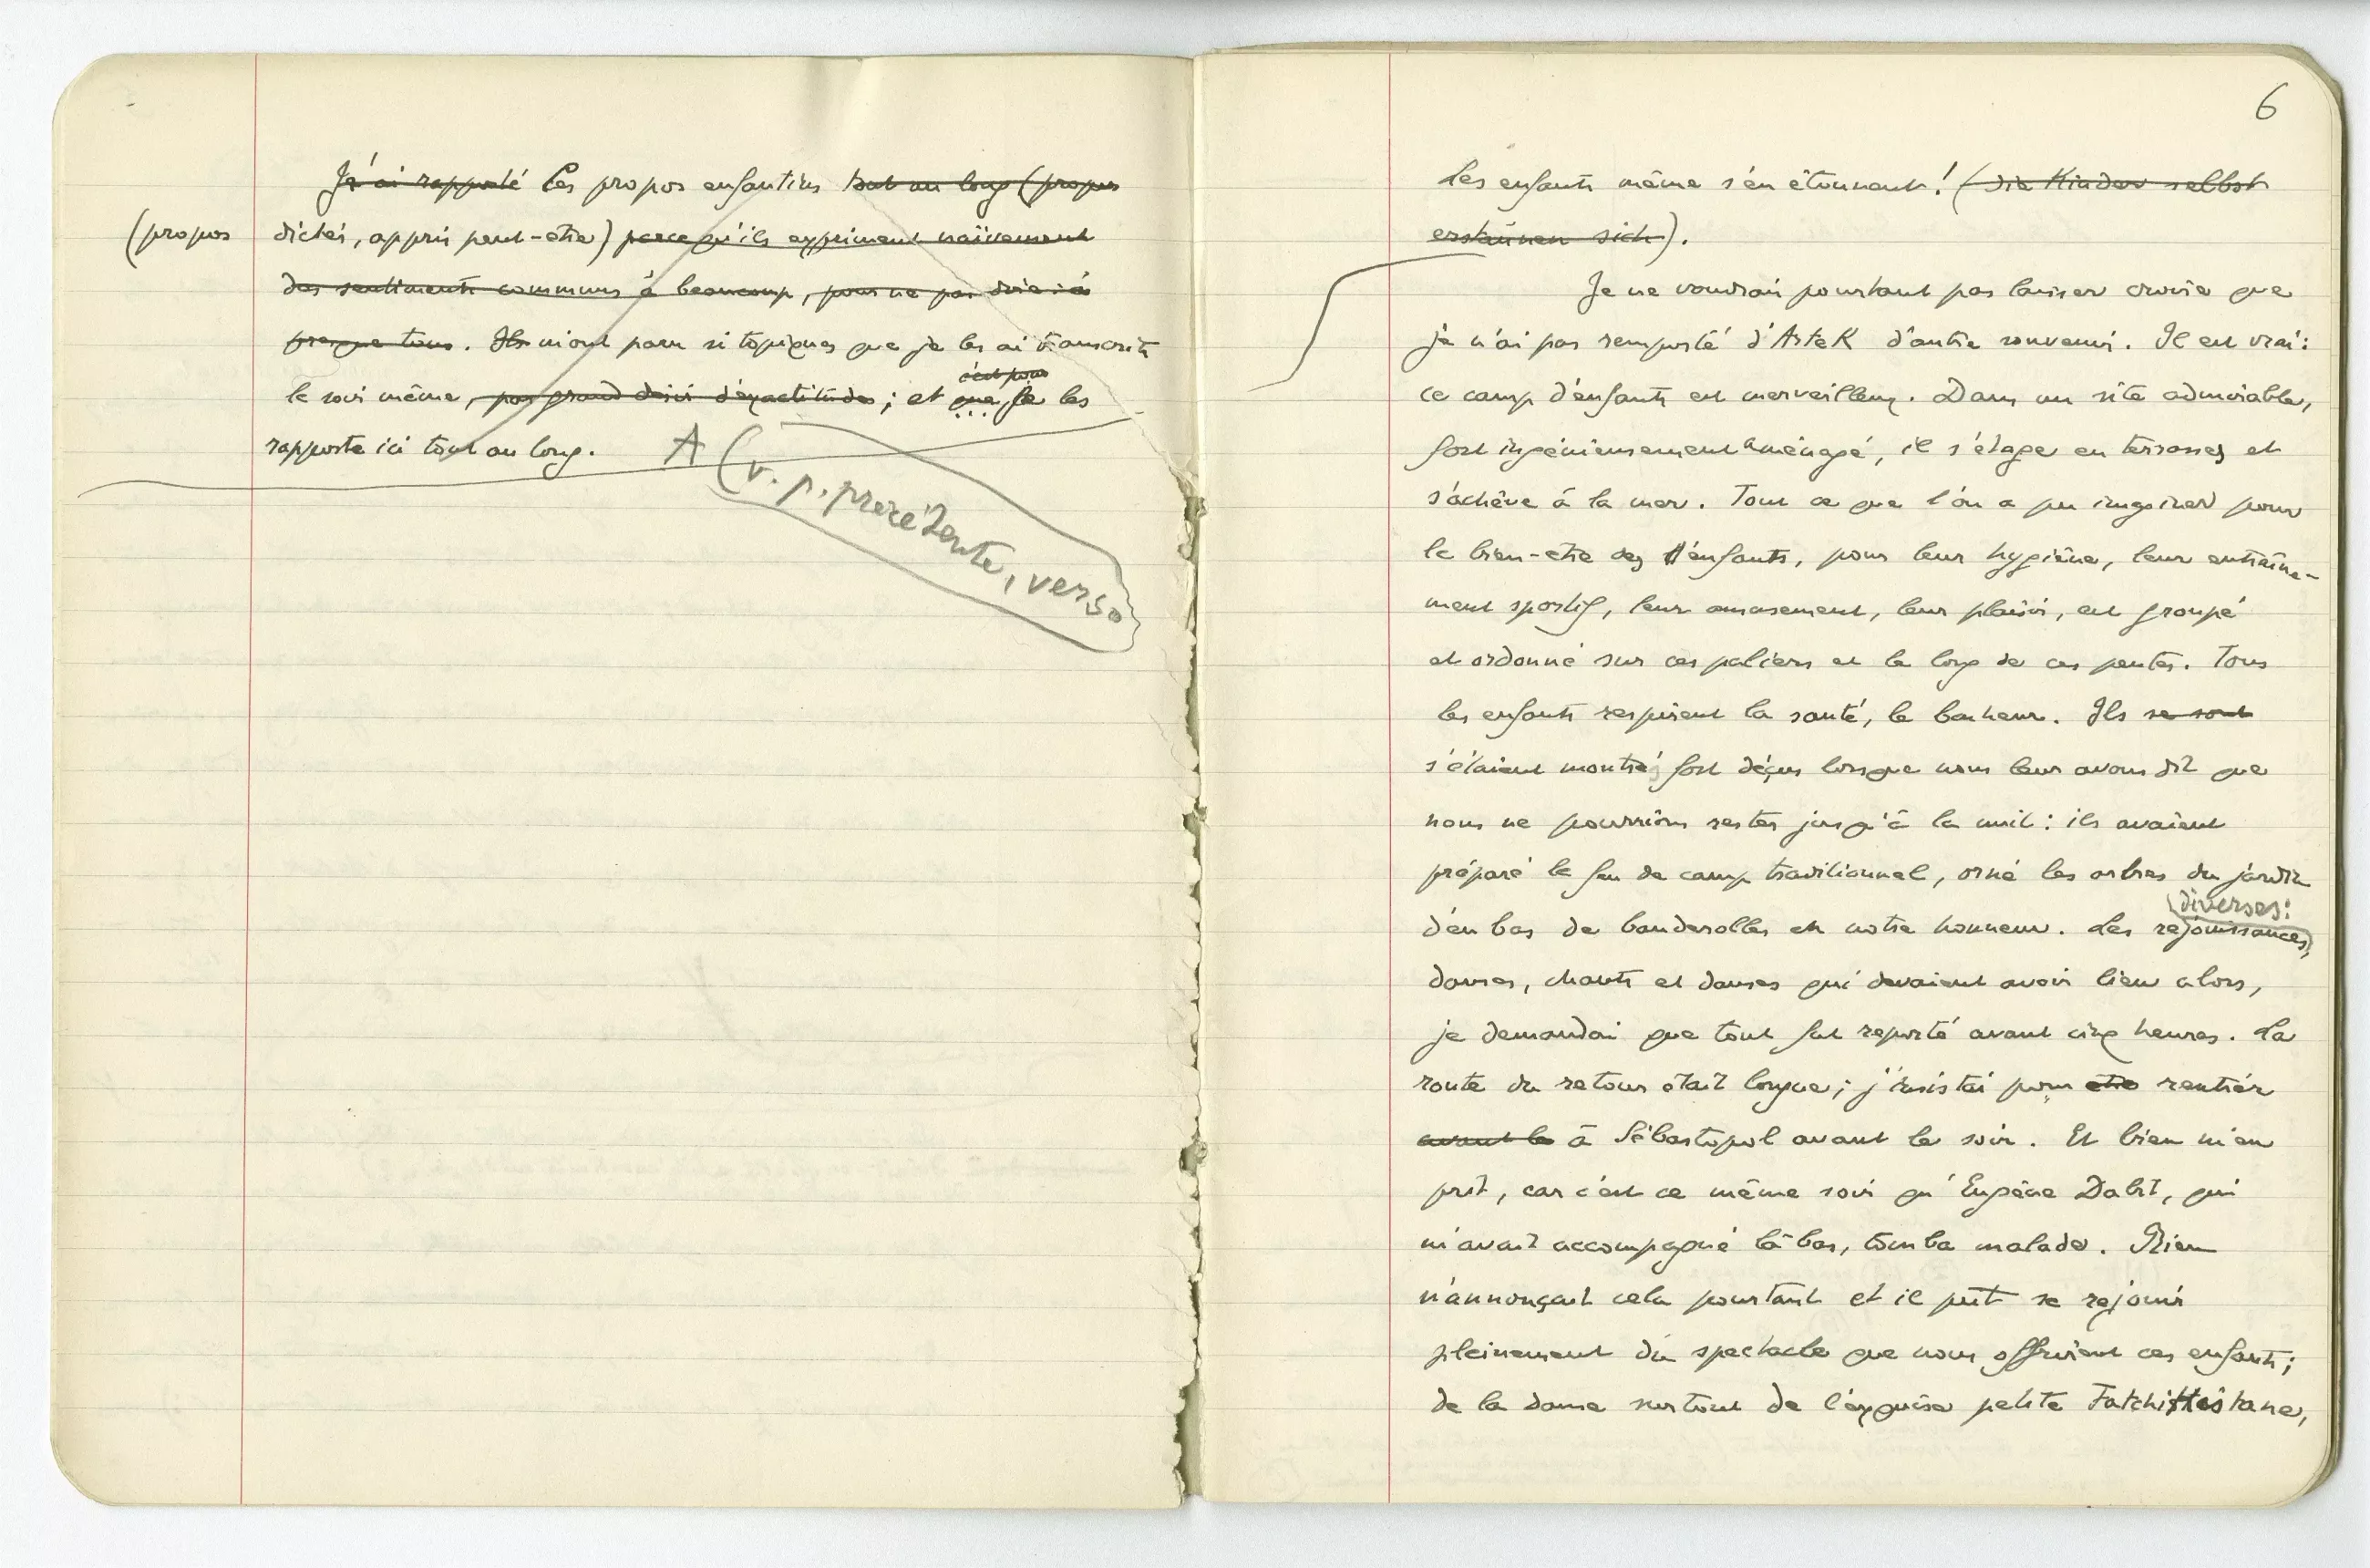 J'ai rapporté Ces propos enfantins tout au long (propos
(propos dictés, appris peut-être) parce qu'ils expriment naïvement
des sentiments communs à beaucoup, pour ne pas dire : à
presque tous. Ils m'ont paru si topiques que je les ai transcrits
c'est pour
le soir même, par grand désir d'exactitude ; et que je les
rapporte ici tout au long.
A (v. p. précédente, verso
6
Les enfants même s'en étonnent ! (die Kinder selbst
erstaünen sich).
Je ne voudrais pourtant pas laisser croire que
je n'ai pas remporté d'Artek d'autre souvenir. Il est vrai :
ce camp d'enfants est merveilleux. Dans un site admirable,
fort ingénieusement aménagé, il s'étage en terrasses et
s'achève à la mer. Tout ce que l'on a pu imaginer pour
le bien-être des d'enfants, pour leur hygiène, leur entraîne-
ment sportif, leur amusement, leur plaisir, est groupé
et ordonné sur ces paliers et le long de ces pentes. Tous
les enfants respirent la santé, le bonheur. Ils se sont
s'étaient montrés fort déçus lorsque nous leur avons dit que
nous ne pourrions rester jusqu'à la nuit : ils avaient
préparé le feu de camp traditionnel, orné les arbres du jardin
diverses :
d'en bas de banderolles en notre honneur. Les réjouissances,
danses, chants et danses qui devaient avoir lieu alors,
je demandai que tout fut reporté avant cinq heures. La
route du retour était longue ; j'insistai pour être rentrér
avant le à Sébastopol avant le soir. Et bien m'en
prit, car c'est ce même soir qu'Eugène Dabit, qui
m'avait accompagné là-bas, tomba malade. Rien
n'annonçait cela pourtant et il put se réjouir
pleinement du spectacle que nous offrirent ces enfants ;
de la danse surtout de l'exquise petite